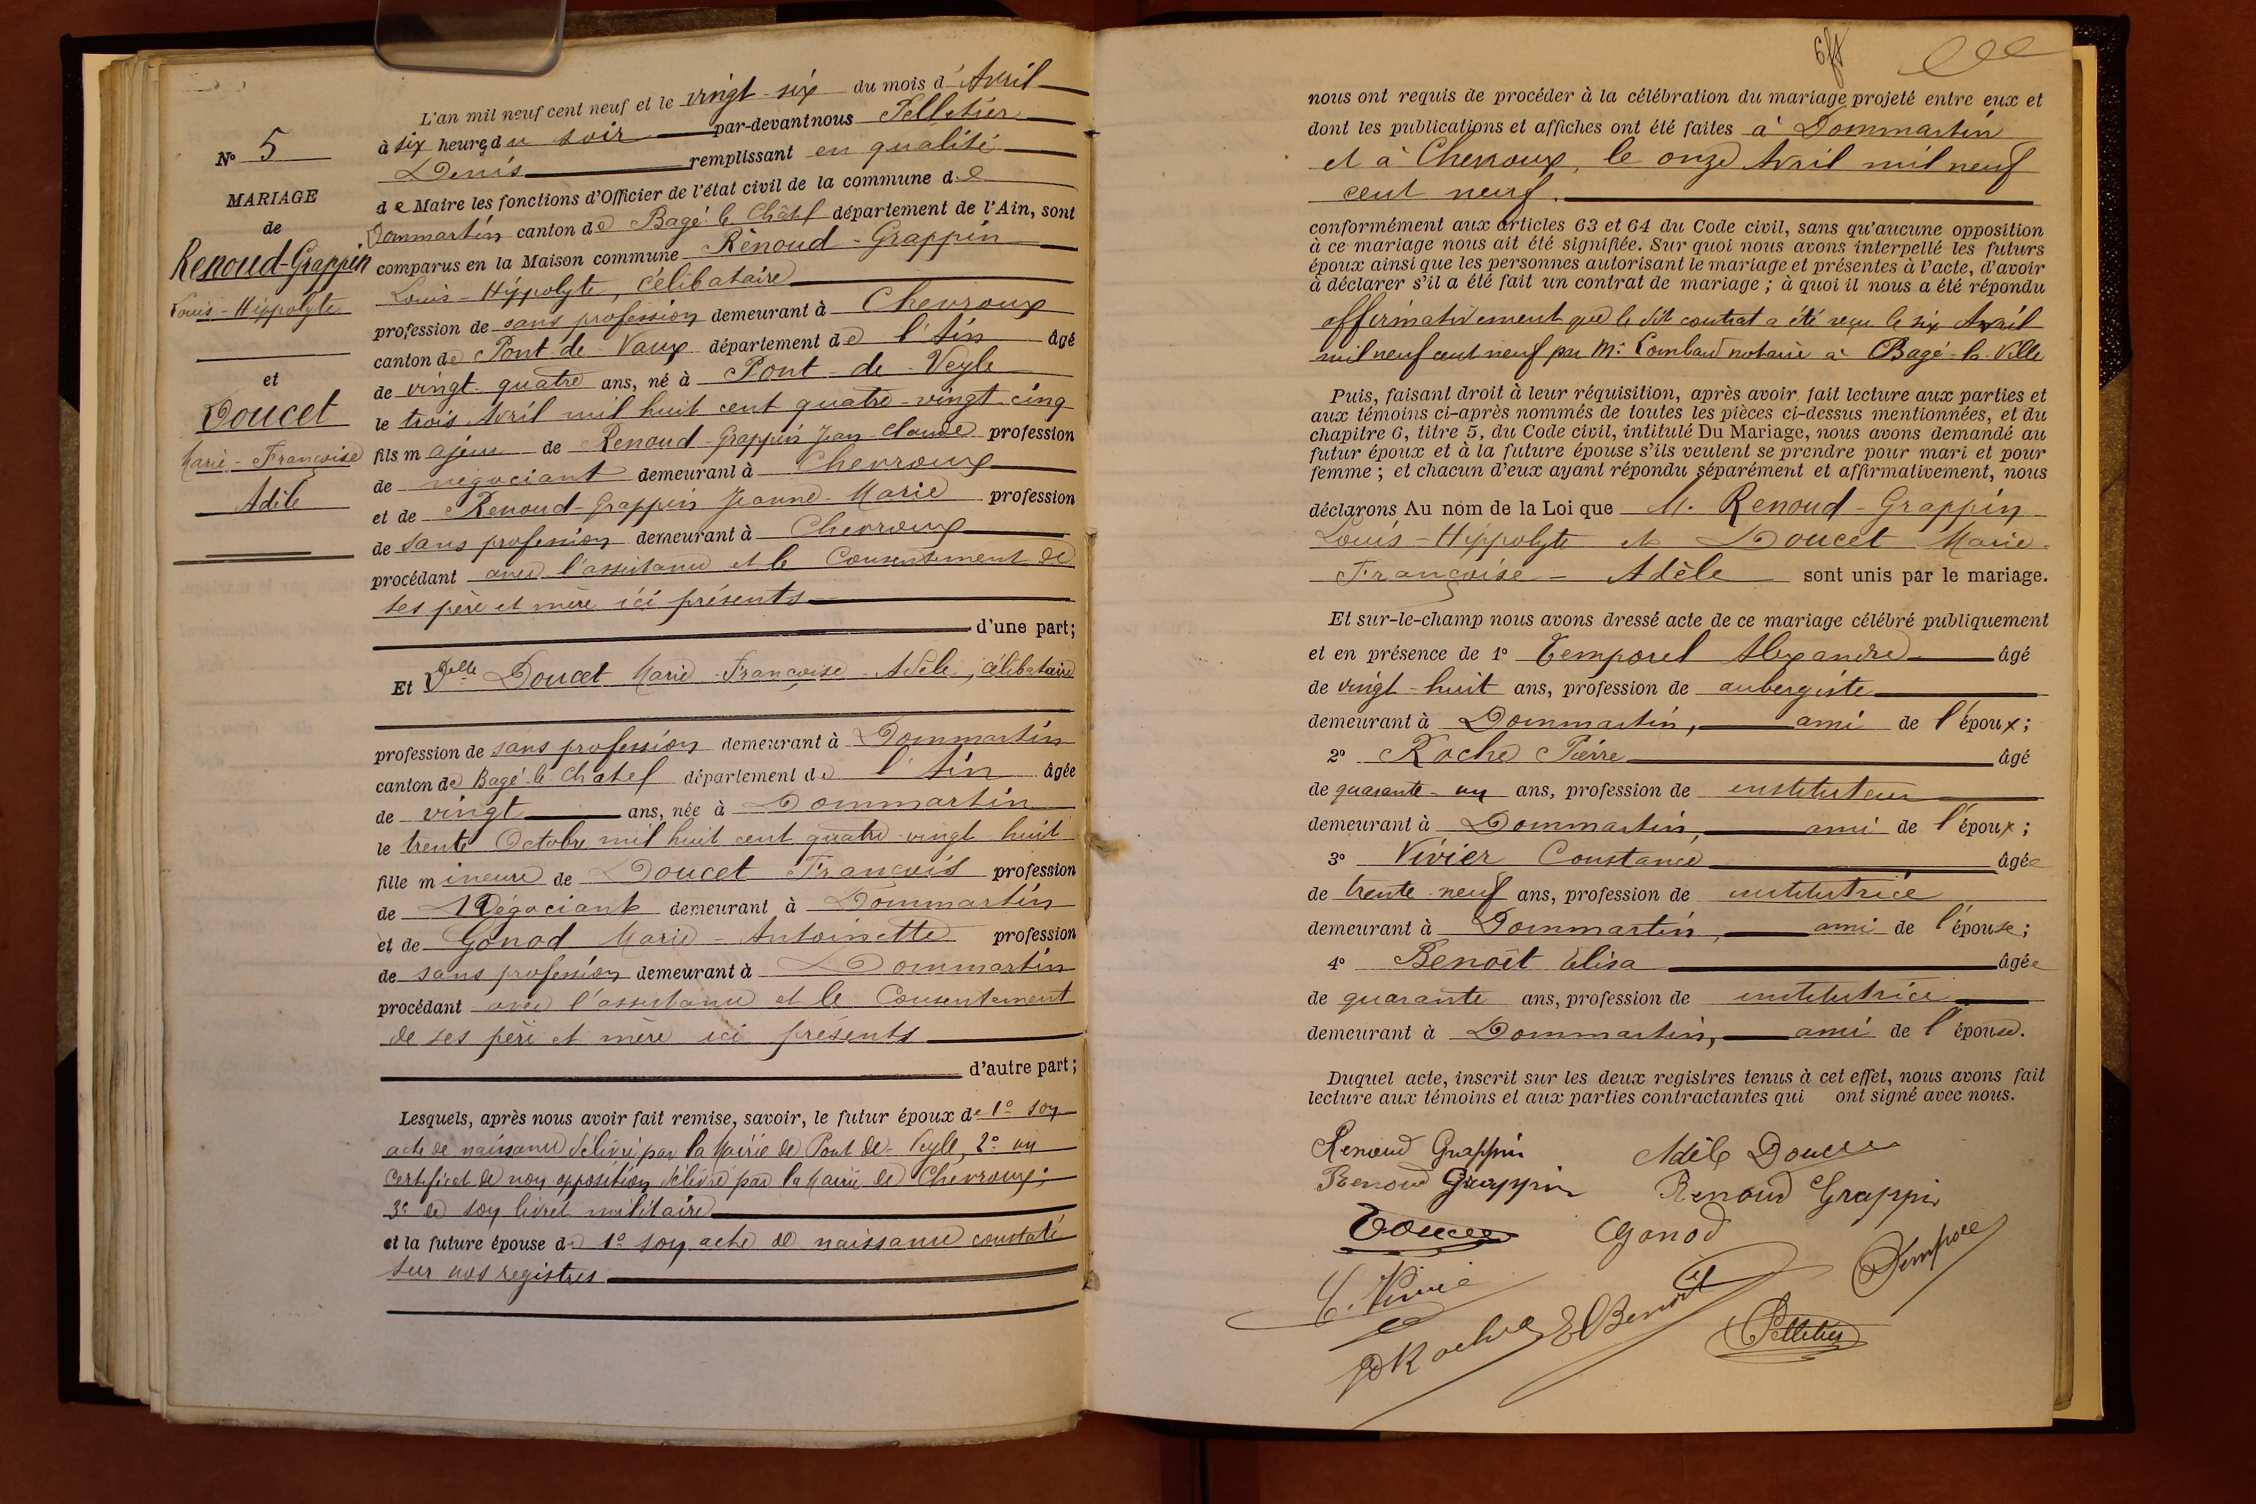 N° 5
MARIAGE
de
Renoud-Grappin
Louis-Hippolyte
et
Doucet
Marie-Françoise
Adèle
L'an mil neuf cent neuf et le vingt-six du mois d'Avril
à six heures du soir par-devant nous Pelletier
Denis remplissant en qualité
de Maire les fonctions d'Officier de l'état civil de la commune de
Dommartin canton de Bagé-le-Châtel département de l'Ain, sont
comparus en la Maison commune Renoud-Grappin
Louis-Hippolyte, célibataire
profession de sans profession demeurant à Chevroux
canton de Pont-de-Vaux département de l'Ain âgé
de vingt-quatre ans, né à Pont-de-Veyle
le trois Avril mil huit cent quatre-vingt-cinq
fils majeur de Renoud-Grappin Jean-Claude profession
de négociant demeurant à Chevroux
et de Renoud-Grappin Jeanne-Marie profession
de sans profession demeurant à Chevroux
procédant avec l'assistance et le consentement de
ses père et mère ici présents
d'une part;
Et Delle Doucet Marie-Françoise-Adèle, célibataire
profession de sans profession demeurant à Dommartin
canton de Bagé-le-Chatel département de l'Ain âgée
de vingt ans, née à Dommartin
le trente Octobre mil huit cent quatre-vingt-huit
fille mineure de Doucet François profession
de Négociant demeurant à Dommartin
et de Gonod Marie-Antoinette profession
de sans profession demeurant à Dommartin
procédant avec l'assistance et le Consentement
de ses père et mère ici présents
d'autre part;
Lesquels, après nous avoir fait remise, savoir, le futur époux de 1° son
acte de naissance délivré par la Mairie de Pont-de-Veyle, 2° un
certificat de non opposition délivré par la Mairie de Chevroux;
3° de son livret militaire
et la future épouse de 1° son acte de naissance constaté
sur nos registres
nous ont requis de procéder à la célébration du mariage projeté entre eux et
dont les publications et affiches ont été faites à Dommartin
et à Chevroux, le onze Avril mil neuf
cent neuf.
conformément aux articles 63 et 64 du Code civil, sans qu'aucune opposition
à ce mariage nous ait été signifiée. Sur quoi nous avons interpellé les futurs
époux ainsi que les personnes autorisant le mariage et présentes à l'acte, d'avoir
à déclarer s'il a été fait un contrat de mariage; à quoi il nous a été répondu
affirmativement que le dit contrat a été reçu le six Avril
mil neuf cent neuf par Me notaire à Bagé-la-Ville
Puis, faisant droit à leur réquisition, après avoir fait lecture aux parties et
aux témoins ci-après nommés de toutes les pièces ci-dessus mentionnées, et du
chapitre 6, titre 5, du Code civil, intitulé Du Mariage, nous avons demandé au
futur époux et à la future épouse s'ils veulent se prendre pour mari et pour
femme; et chacun d'eux ayant répondu séparément et affirmativement, nous
déclarons Au nom de la Loi que M. Renoud-Grappin
Louis-Hippolyte et Doucet Marie-
Françoise-Adèle sont unis par le mariage.
Et sur-le-champ nous avons dressé acte de ce mariage célébré publiquement
et en présence de 1° Temporel Alexandre âgé
de vingt-huit ans, profession de aubergiste
demeurant à Dommartin, ami de l'époux;
2° Roche Pierre âgé
de quarante-un ans, profession de instituteur
demeurant à Dommartin, ami de l'époux;
3° Vivier Constance âgée
de trente-neuf ans, profession de institutrice
demeurant à Dommartin, ami de l'épouse;
4° Benoît Elisa âgée
de quarante ans, profession de institutrice
demeurant à Dommartin, ami de l'épouse.
Duquel acte, inscrit sur les deux registres tenus à cet effet, nous avons fait
lecture aux témoins et aux parties contractantes qui ont signé avec nous.
Renoud Grappin Adèle Doucet
Renoud Grappin Renoud Grappin
Doucet Gonod
C. Vivier Temporel
P Roche E Benoît Pelletier